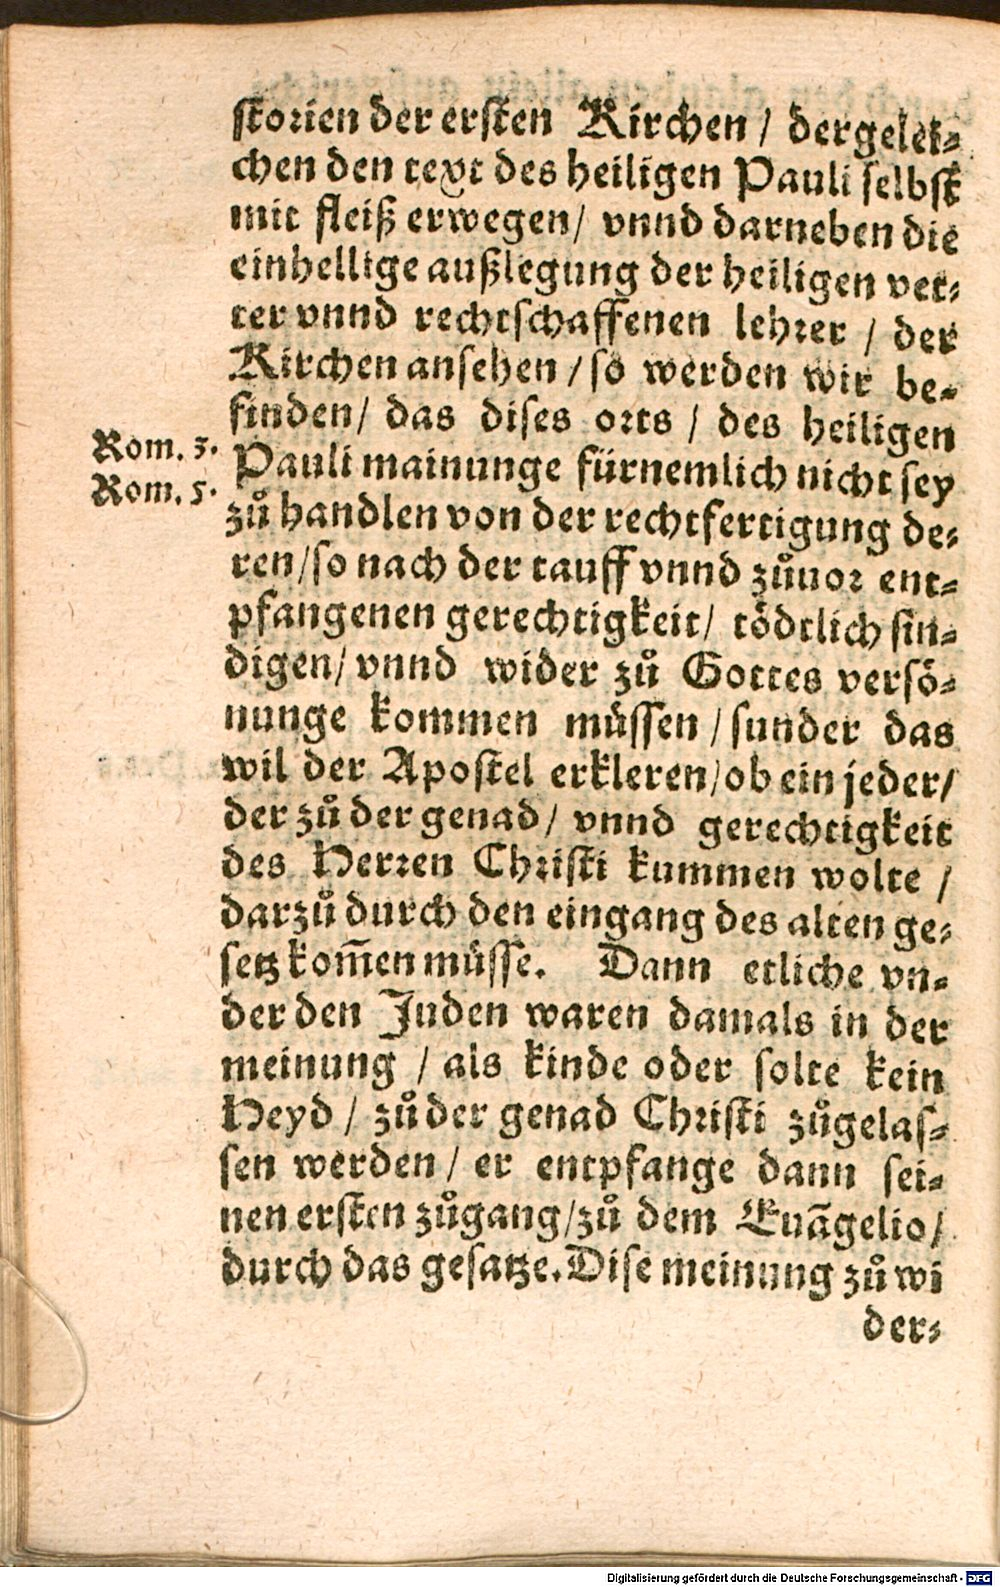 storien der ersten Kirchen / dergelei⸗
chen den text des heiligen Pauli selbst
mit fleiß erwegen / vnnd darneben die
einhellige außlegung der heiligen vet⸗
ter vnnd rechtschaffenen lehrer / der
Kirchen ansehen / so werden wir be⸗
finden / das dises orts / des heiligen
Rom. 3.
Pauli mainunge fürnemlich nicht sey
Rom. 5.
zů handlen von der rechtfertigung de⸗
ren / so nach der tauff vnnd zůuor ent⸗
pfangenen gerechtigkeit / tödtlich sin⸗
digen / vnnd wider zů Gottes versö⸗
nunge kommen müssen / sunder das
wil der Apostel erkleren / ob ein jeder /
der zů der genad / vnnd gerechtigkeit
des Herren Christi kummen wolte /
darzů durch den eingang des alten ge⸗
setz kom̄en müsse. Dann etliche vn⸗
der den Juden waren damals in der
meinung / als kinde oder solte kein
Heyd / zů der genad Christi zůgelas⸗
sen werden / er entpfange dann sei⸗
nen ersten zůgang / zů dem Euãgelio /
durch das gesatze. Dise meinung zů wi
der⸗
Digitalisierung gefördert durch die Deutsche Forschungsgemeinschaft - DFG